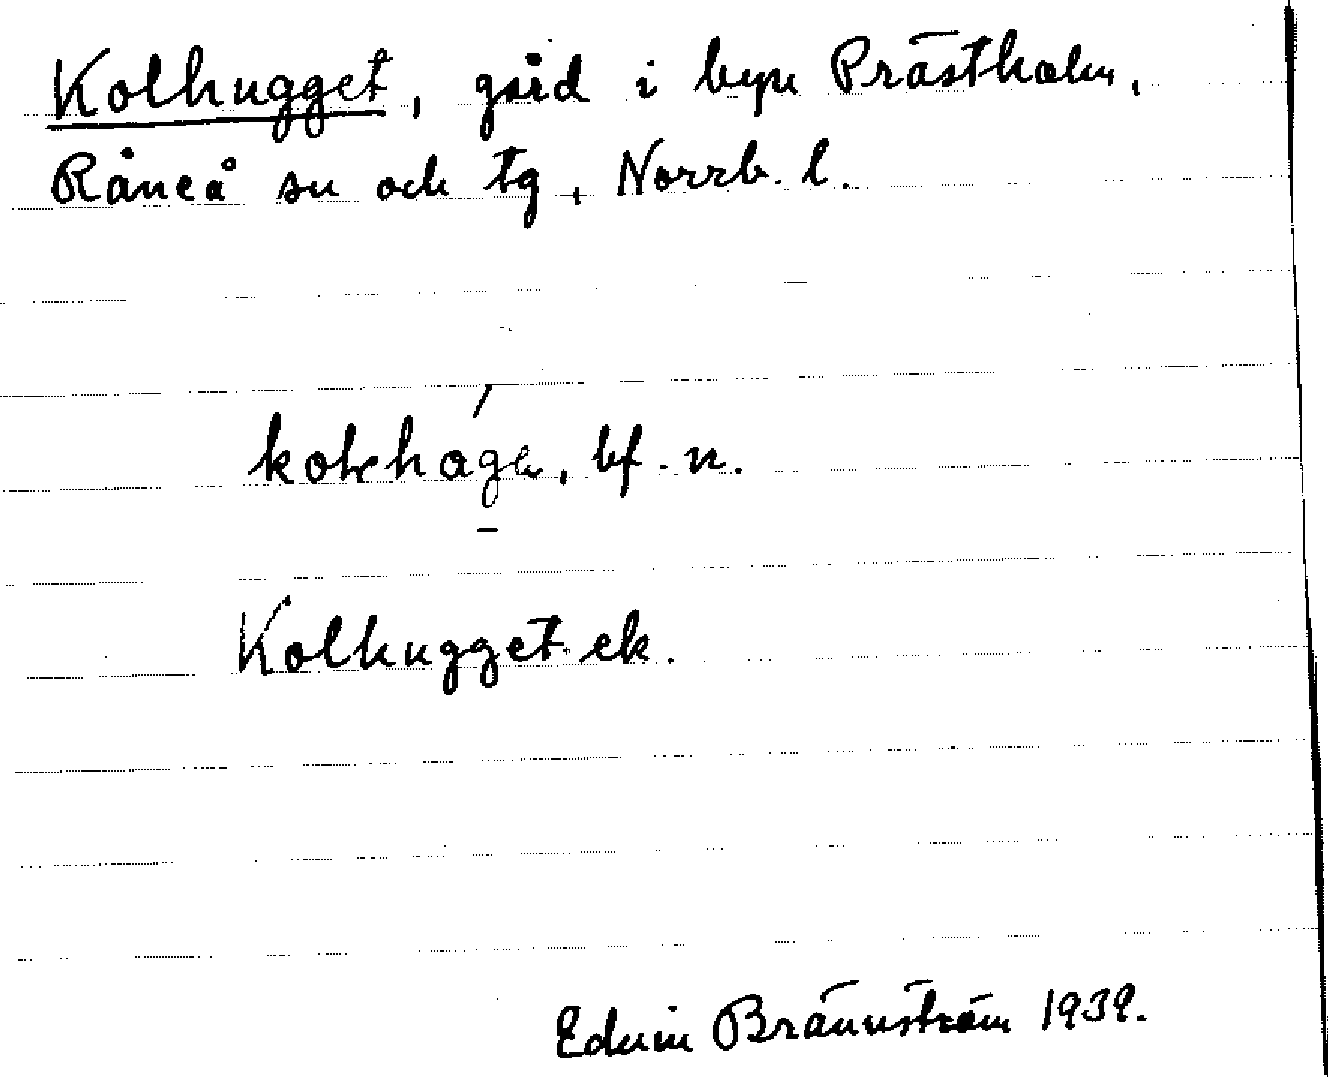 Kolhugget, gård i byn Prästholm,
Råneå sn och tg, Norrb. l.
bf. n.
Kolhugget ek.
Edvin Brännström 1939.